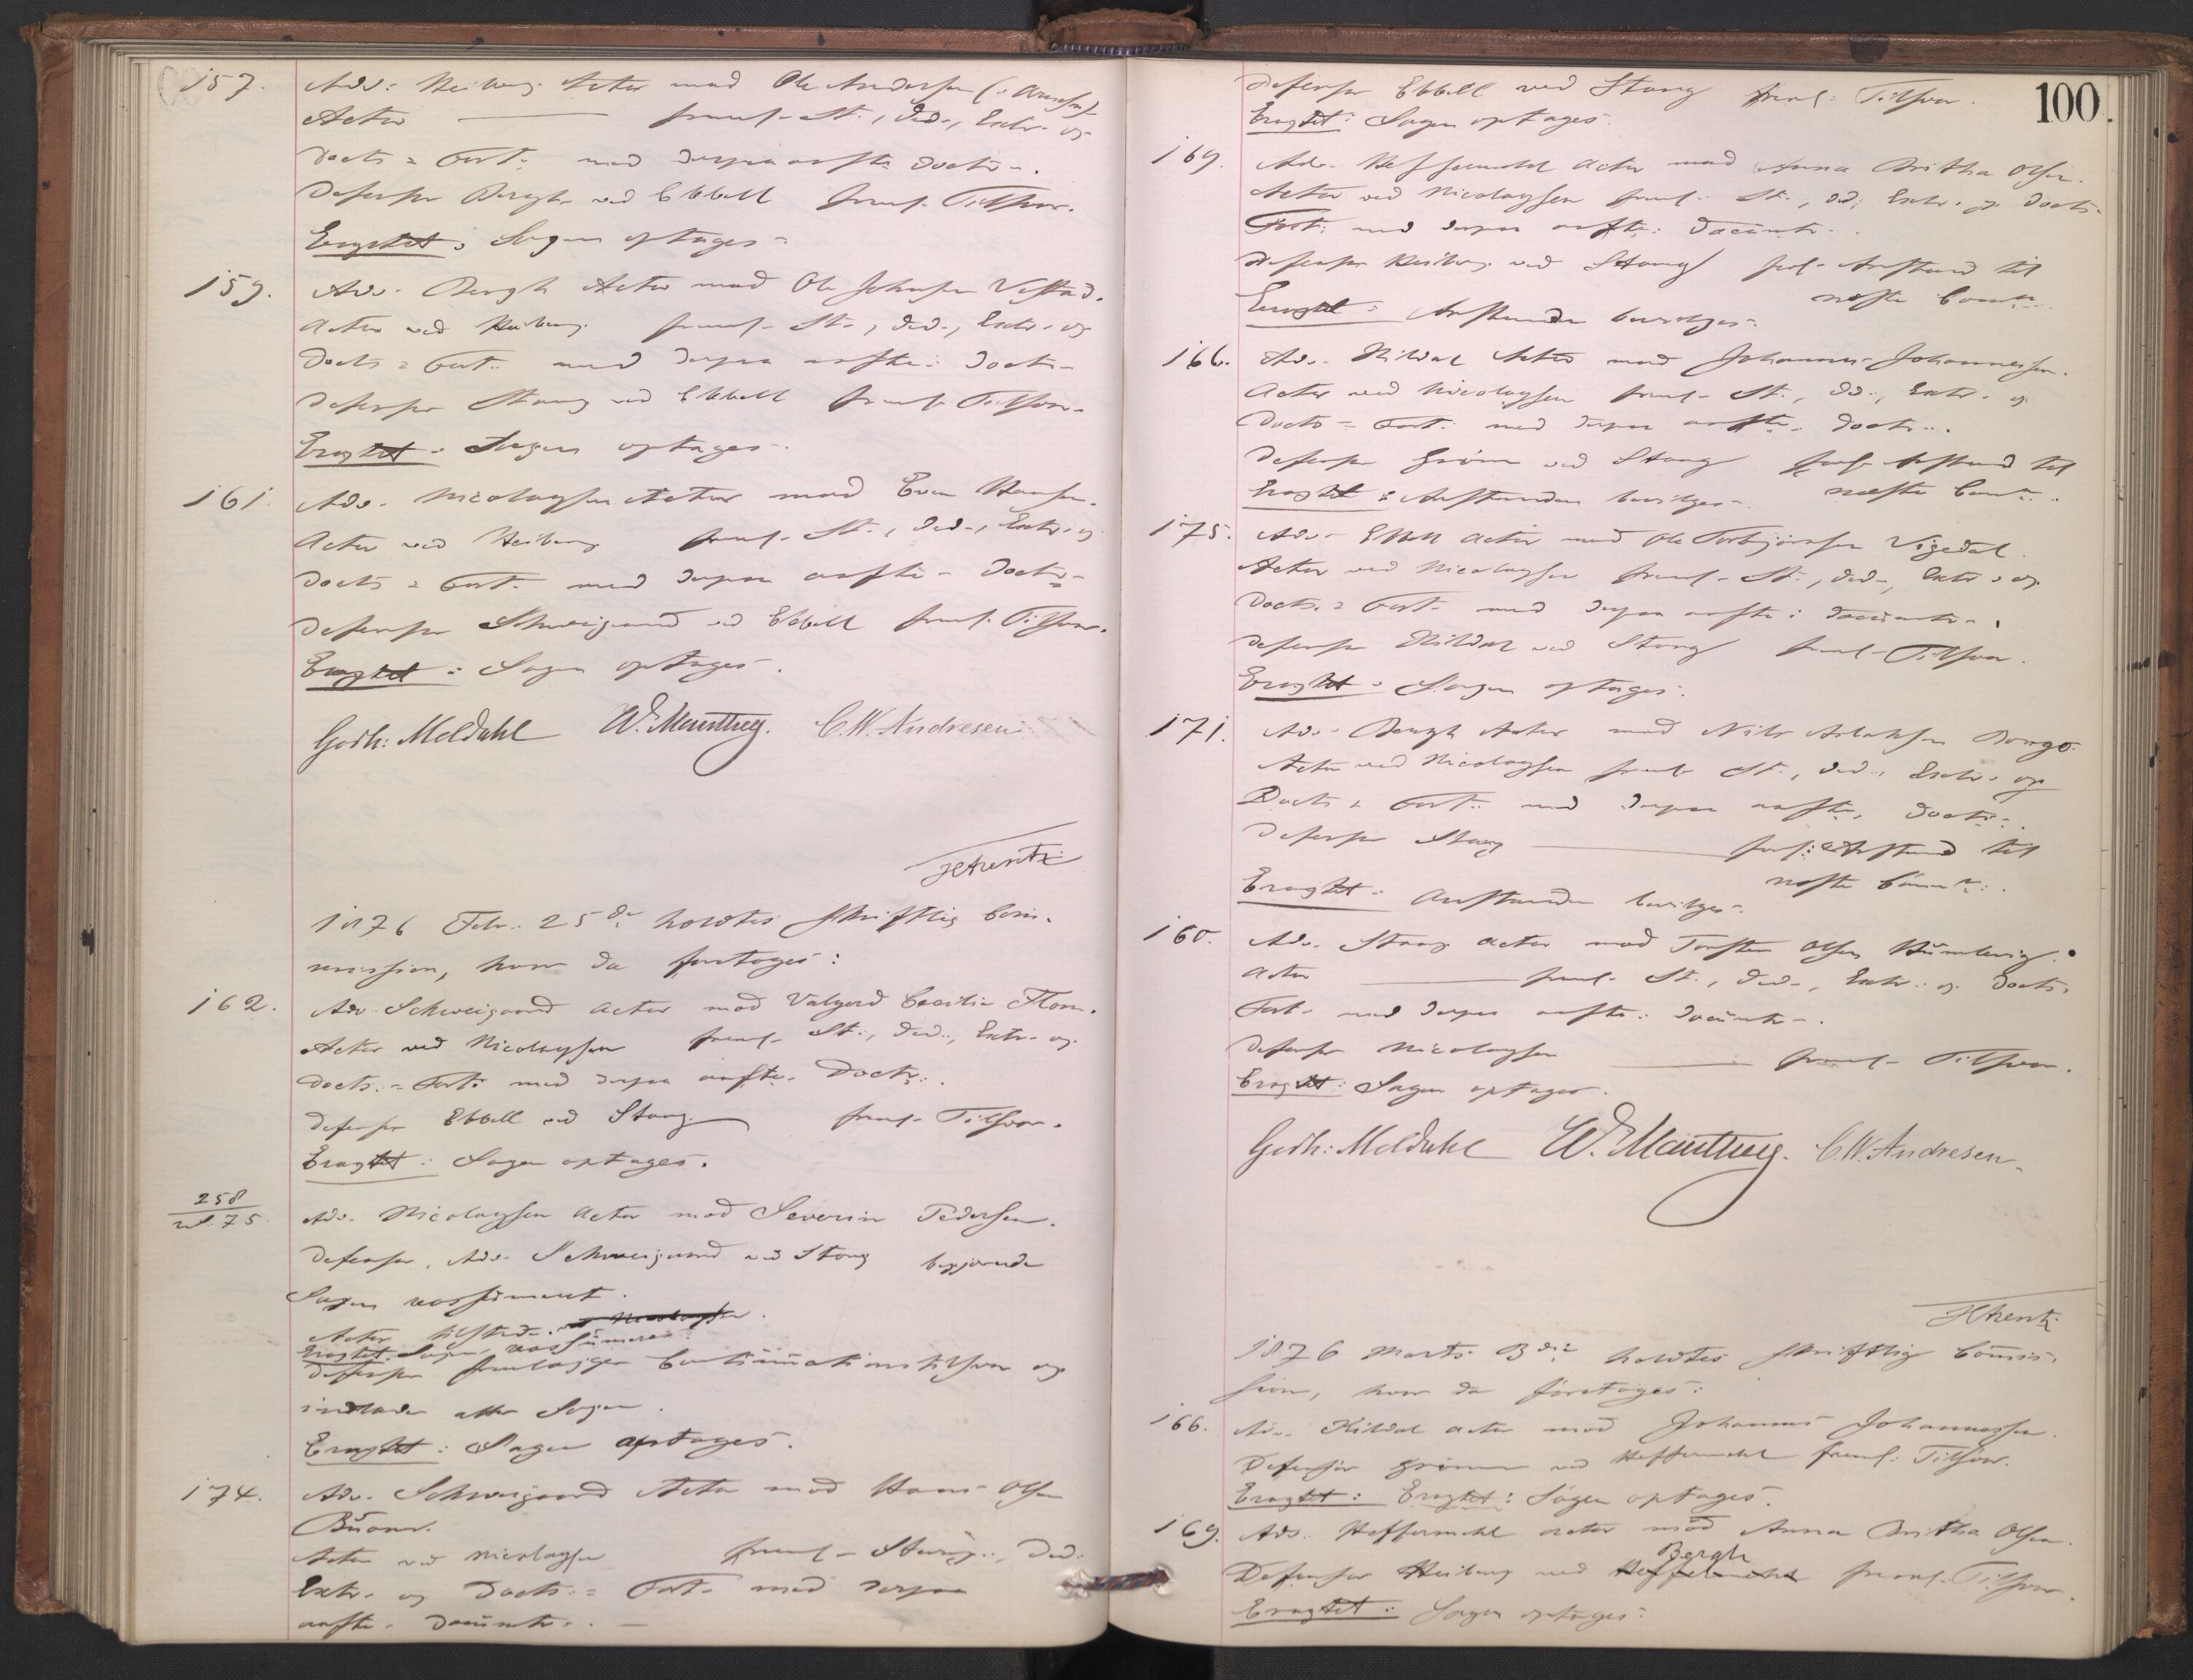 157. Adv: Heiberg Actor mod Ole Andersen (: Arnesen)
Actor — freml. St., Ded., Extr. og
Docts = Fort. med derpaa anfte Doctr.
Defensor Bergh ved Ebbell freml. Tilsvar.
Eragtet: Sagen optages.
159. Adv. Bergh Actor mod Ole Johnsen Vestad.
Actor ved Heiberg freml. St., Ded., Extr. og
Docts = Fort. med derpaa anfte: Doctr.
Defensor Stang ved Ebbell freml. Tilsvar.
Eragtet: Sagen optages.
161. Adv. Nicolaysen Actor mod Even Hansen.
Actor ved Heiberg freml. St., Ded., Extr. og
Docts = Fort. med derpaa anfte Doctr.
Defensor Schweigaard ved Ebbell freml. Tilsvar.
Eragtet: Sagen optages.
Godh: Meldahl C.W. Andresen
1876 Febr. 25de holdtes skriftlig Com-
mission, hvor da foretoges:
162. Adv. Schweigaard Actor mod Valgerd Cecilie Flom.
Actor ved Nicolaysen freml. St., Ded., Extr. og
Docts. = Fort. med derpaa anfte. Doctr.
Defensor Ebbell ved Stang freml. Tilsvar.
Eragtet: Sagen optages.
258
75.
Adv. Nicolaysen Actor mod Severin Pedersen.
Defensor, Adv. Schweigaard ved Stang begjærede
Sagen reassumeret.
Actor tilstede. ved Nicolaysen.
Eragtet: Sagen reassumeres.
Defensor fremlægger Continuationstilsvar og
indlader atter Sagen.
Eragtet: Sagen optages.
174. Adv. Schweigaard Actor mod Hans Olsen
Actor ved Nicolaysen freml. Stevn., Ded.
Extr. og Docts. = Fort. med derpaa
anfte. Documtr. —
100.
Defensor Ebbell ved Stang freml: Tilsvar.
Eragtet: Sagen optages.
169. Adv. Heffermehl Actor mod Anna Britha Olsen.
Actor ved Nicolaysen freml. St., Ded., Extr. og Docts-
Fort. med derpaa anfte: Documtr.
Defensor Heiberg ved Stang forl. Anstand til
næste Comm.
Eragtet: Anstanden bevilges.
166. Adv. Kildal Actor mod Johannes Johannessen.
Actor ved Nicolaysen freml. St., Ded., Extr. og
Docts = Fort. med derpaa anfte. Doctr.
Defensor Grönn ved Stang forl. Anstand til
næste Comm.
Eragtet: Anstanden bevilges.
175. Adv. Ebbell Actor mod Ole Torbjörnsen Vigedal.
Actor ved Nicolaysen freml. St., Ded., Extr. og
Docts. = Fort. med derpaa anfte: Documtr.
Defensor Kildal ved Stang freml. Tilsvar.
Eragtet: Sagen optages.
171. Adv. Bergh Actor mod Nils Aslaksen Bongo.
Actor ved Nicolaysen freml. St., Ded., Extr. og
Docts = Fort. med derpaa anfte. Doctr.
Defensor Stang — forl: Anstand til
næste Comm.
Eragtet: Anstanden bevilges.
160. Adv. Stang Actor mod Torsten Olsen Humlevig.
Actor — freml. St., Ded., Extr. og Docts.
Fort. med derpaa anfte: Documtr.
Defensor Nicolaysen — freml. Tilsvar.
Eragtet: Sagen optages.
Godh: Meldahl C.W. Andresen
1876 Marts 3die holdtes skriftlig Commis-
sion, hvor da foretoges:
166. Adv. Kildal Actor mod Johannes Johannessen.
Defensor Grönn ved Heffermehl freml. Tilsvar.
Eragtet: Eragtet: Sagen optages.
169. Adv. Heffermehl Actor mod Anna Britha Olsen.
Bergh
Defensor Heiberg ved Heffermehl freml. Tilsvar.
Eragtet: Sagen optages.